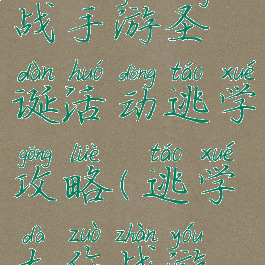 战手游圣
dàn huó dòng táo xué
诞活动逃学
gōng lüè táo xué
攻略(逃学
dà zuò zhàn yóu
大作战游